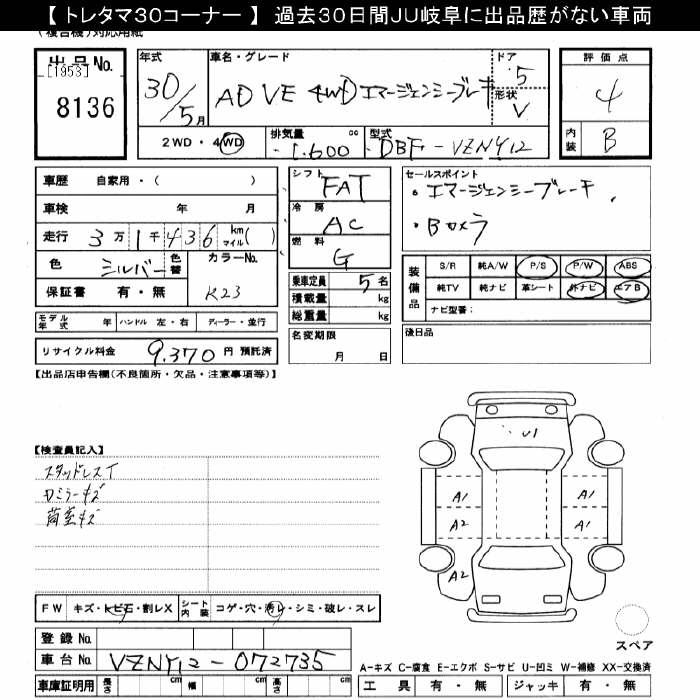 【 トレタマ30コーナー 】 過去30日間JU岐阜に出品歴がない車両
出品No.
[1953]
8136
年式 車名・グレード ドア
30/5月 AD VE 4WD エマージェンシーブレーキ 5
形状 V
2WD・4WD 排気量 1.600 cc 型式 DBF-VZNY12
評価点
4
内装 B
車歴 自家用・( )
車検 年 月
走行 3万1千436 km マイル( )
色 シルバー 色替 カラーNo.
保証書 有・無 K23
モデル年式 年 ハンドル 左・右 ディーラー・並行
リサイクル料金 9,370 円 預託済
シフト FAT
冷房 AC
燃料 G
乗車定員 5名
積載量 kg
総重量 kg
名変期限
月 日
セールスポイント
・エマージェンシーブレーキ
・Bカメラ
装備品 S/R 純A/W P/S P/W ABS
純TV 純ナビ 革シート 外ナビ エアB
ナビ型番:
後日品
【出品店申告欄(不良箇所・欠品・注意事項等)】
【検査員記入】
スタッドレスT
Dミラーキズ
荷室キズ
U1
A1 A1
A2 A1
A2
スペア
FW キズ・トビ石・割レX シート内装 コゲ・穴・汚レ・シミ・破レ・スレ
登録No.
車台No. VZNY12-072735
車庫証明用 長さ cm 幅 cm 高さ cm
A-キズ C-腐食 E-エクボ S-サビ U-凹ミ W-補修 XX-交換済
工具 有・無 ジャッキ 有・無